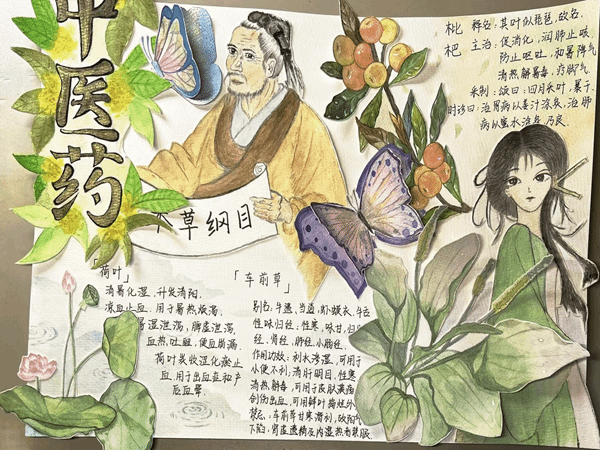 中医药
本草纲目
枇杷
释名：其叶似琵琶，故名。
主治：促消化，润肺止咳
防止呕吐，和暑降气
清热解暑毒，疗脚气
采制：颂曰：四月采叶，暴干
时珍曰：治胃病以姜汁涂炙，治肺
病以蜜水涂炙，乃良。
「荷叶」
清暑化湿，升发清阳，
凉血止血，用于暑热烦渴，
暑湿泄泻，脾虚泄泻，
血热，吐衄，便血崩漏。
荷叶炭收涩化瘀止
血，用于出血症和产
后血晕。
「车前草」
别名：牛遗，当道，虾蟆衣，牛舌
性味归经：性寒，味甘，归
经，肾经，肺经，小肠经。
作用功效：利水渗湿，可用于
小便不利，清肝明目，性寒
清热解毒，可用于皮肤黄病
创伤出血，可用鲜叶捣烂外
禁忌：车前草甘寒滑利，故阳气
下陷，肾虚遗精及内湿热者禁服。